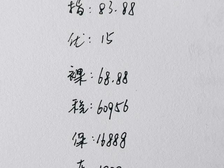 指: 83.88
优: 15
裸: 68.88
税: 60956
保: 16888